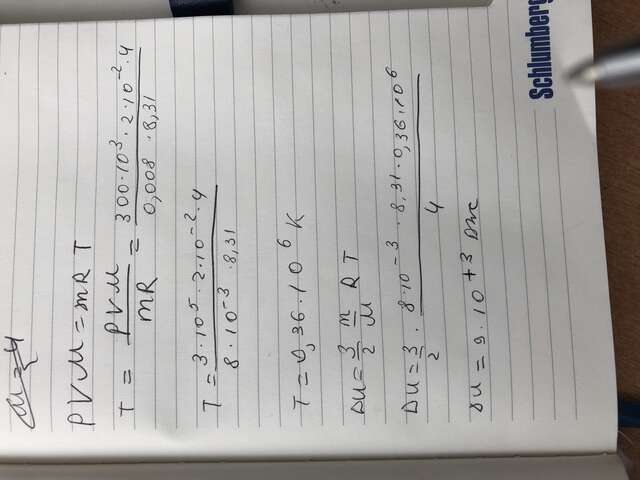 M = 4
PVM = mRT
T = PVM / mR = 300·10³·2·10⁻²·4 / 0,008·8,31
T = 3·10⁵·2·10⁻²·4 / 8·10⁻³·8,31
T = 0,36·10⁶ K
ΔU = 3/2 m/M R T
ΔU = 3/2 · 8·10⁻³·8,31·0,36·10⁶ / 4
ΔU = 9·10⁺³ Дж
Schlumberg